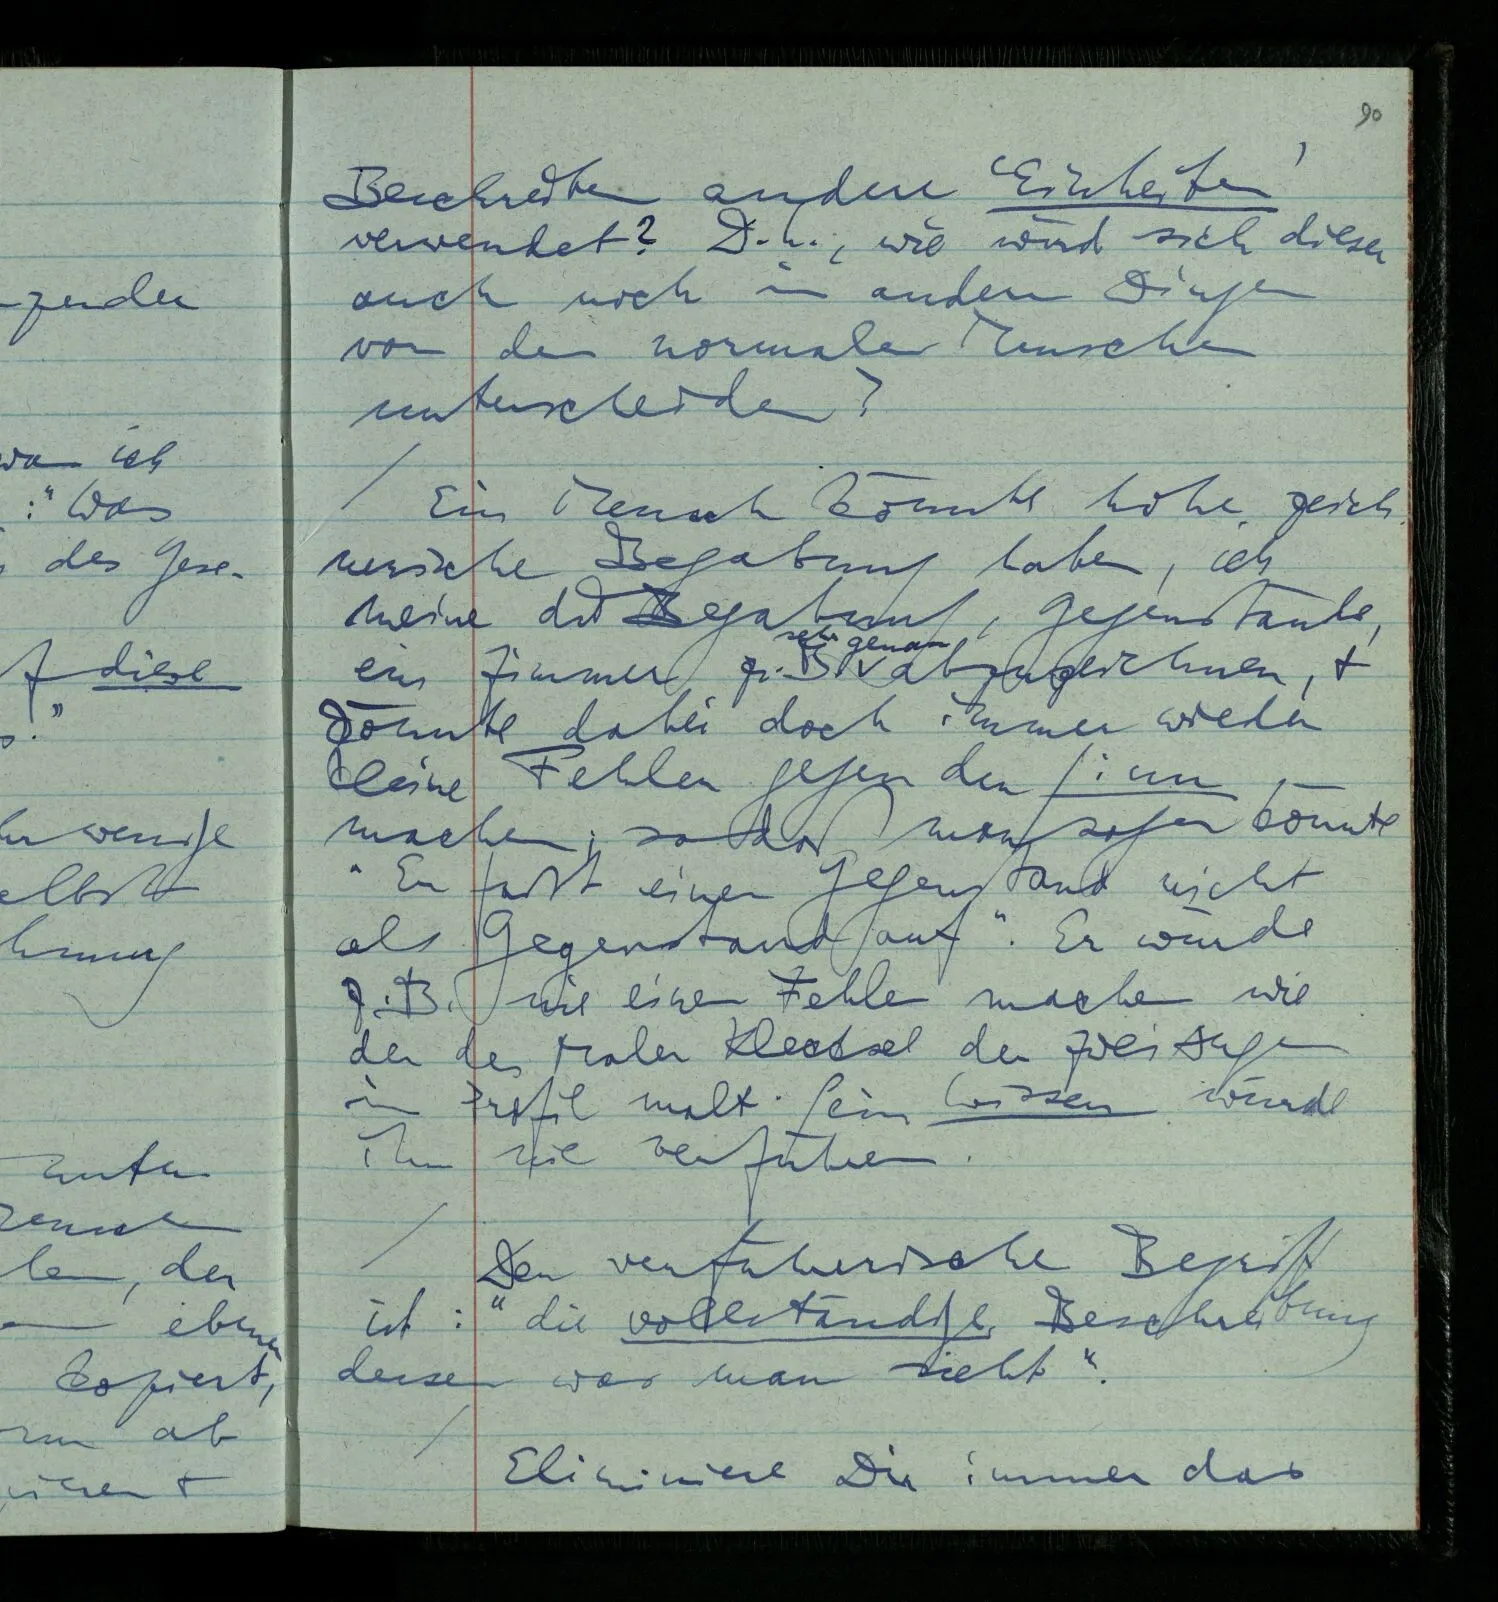 90
Beschreiben andere 'Einheiten'
verwendet? D.h., wie wird sich dieser
auch noch in andern Dingen
von dem normalen Menschen
unterscheiden?
/ Ein Mensch könnte hohe zeich-
nerische Begabung haben, ich
meine die Begabung, Gegenstände,
ein Zimmer z.B. sehr genau abzuzeichnen, &
könnte dabei doch immer wieder
kleine Fehler gegen den Sinn
machen; so daß man sagen könnte
"Er faßt einen Gegenstand nicht
als Gegenstand auf". Er würde
z.B. nie einen Fehler machen wie
der des Maler Klecksel der zwei Augen
im Profil malt. Sein Wissen würde
ihn nie verführen.
/ Der verführerische Begriff
ist: "die vollständige Beschreibung
dessen was man sieht".
/
Eliminiere Dir immer das
wa ich
:"Was
des Gese-
diese
."
wenige
elbst
unter
der
eben
kopiert,
ab
&